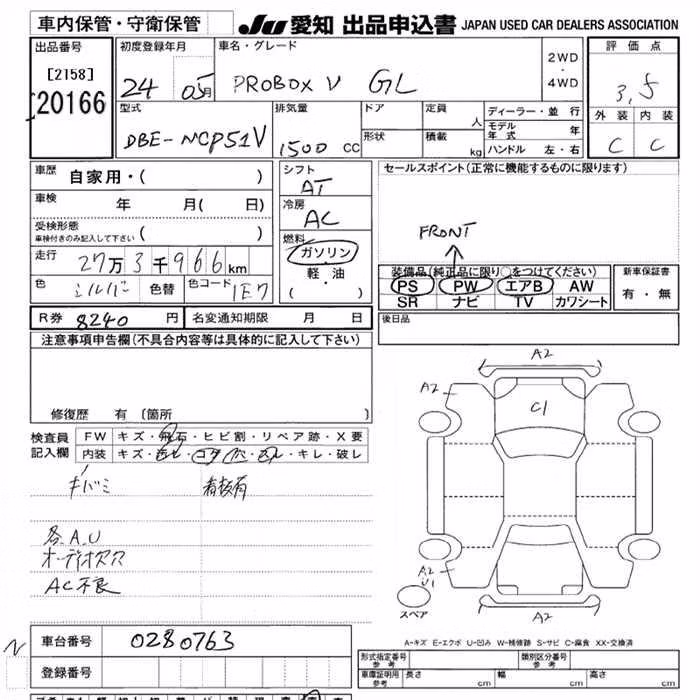 車内保管・守衛保管 JU 愛知 出品申込書 JAPAN USED CAR DEALERS ASSOCIATION
出品番号 初度登録年月 車名・グレード 評価点
[2158] 24 05月 PROBOX V GL 2WD・4WD 3.5
20166
型式 排気量 ドア 定員 人 ディーラー・並行 外装 内装
DBE-NCP51V 1500 CC 形状 積載 kg モデル年式 年 C C
ハンドル 左・右
車歴 自家用・( ) シフト セールスポイント(正常に機能するものに限ります)
AT
車検 年 月( 日) 冷房
AC
受検形態 車検付きのみ記入して下さい ( ) 燃料 FRONT
走行 27万3千966km ガソリン 装備品(純正品に限り○をつけてください) 新車保証書
軽・油 PS PW エアB AW 有・無
色 シルバー 色替 色コード 1E7 ( ) SR ナビ TV カワシート
R券 8240 円 名変通知期限 月 日 後日品
注意事項申告欄(不具合内容等は具体的に記入して下さい)
A2
A2
C1
修復歴 有〔箇所 〕
検査員記入欄 FW キズ・飛石・ヒビ割・リペア跡・X要
内装 キズ・汚レ・コゲ・穴・スレ・キレ・破レ
キバミ 看板有
各A.U
オーディオ穴穴
AC不良
A2
U1
スペア A2
A-キズ E-エクボ U-凹み W-補修跡 S-サビ C-腐食 XX-交換済
N 車台番号 0280763
登録番号
型式指定番号 参考 類別区分番号 参考
車庫証明用 参考 長さ cm 幅 cm 高さ cm